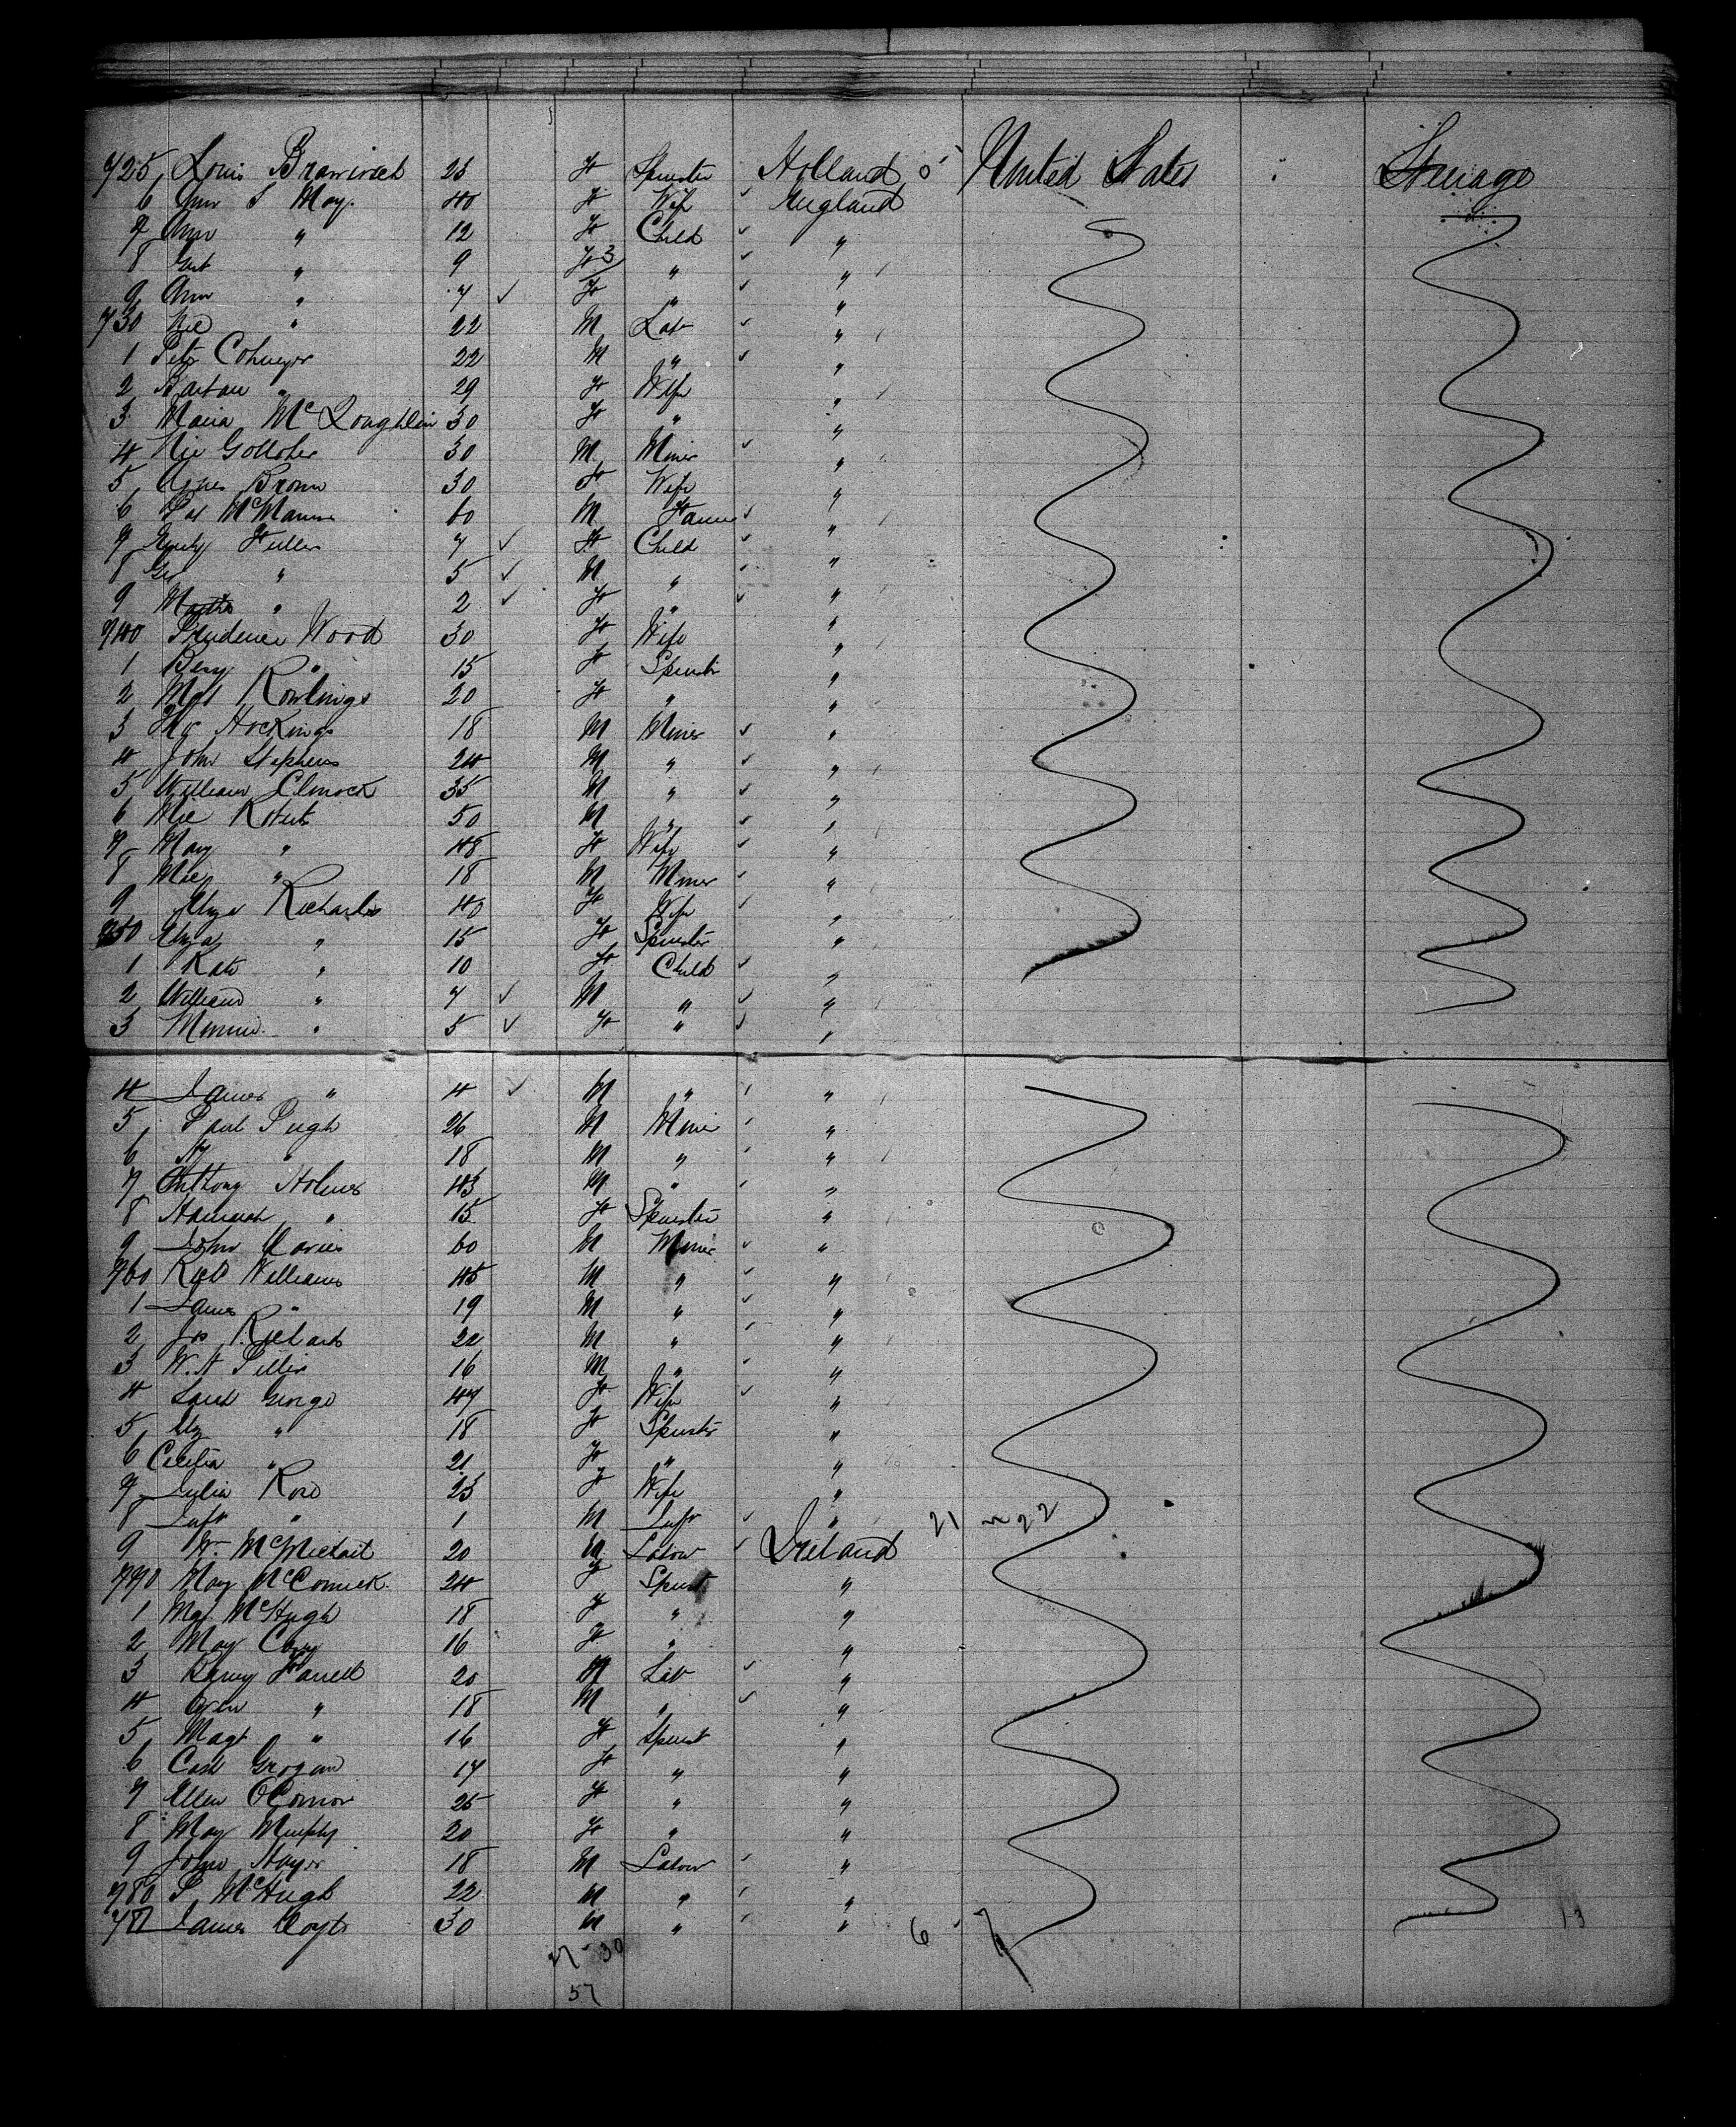 725 Louis 25 F Spinster Holland United States Steerage
6 Ann S May. 40 F Wife England
7 Ann " 12 F Child "
8 " 9 F " "
9 Ann " 7 F " "
730 " 22 M Lab "
1 Peter 22 M " "
2 " 29 F Wife "
3 Maria McLoughlin 30 F " "
4 30 M Miner "
5 Agnes Brown 30 F Wife "
6 McManus 60 M Farmer "
7 Fuller 7 F Child "
8 Geo " 5 M " "
9 Martha " 2 F " "
740 Prudence Wood 30 F Wife "
1 Bessy " 15 F Spinster "
2 Mgt Rowlings 20 F " "
3 Hockings 18 M Miner "
4 John Stephens 24 M " "
5 William 35 M " "
6 Roberts 50 M " "
7 Mary " 48 F Wife "
8 " 18 M Miner "
9 Richards 40 F Wife "
750 Eliza " 15 F Spinster "
1 Kate " 10 F Child "
2 William " 7 M " "
3 Minnie " 5 F " "
4 James " 4 M " "
5 Paul Pugh 26 M Miner "
6 Hy " 18 M " "
7 Anthony Holmes 43 M " "
8 Hannah " 15 F Spinster "
9 John Davies 60 M Miner "
760 Richd Williams 45 M " "
1 James " 19 M " "
2 Jos Richards 22 M " "
3 W.H 16 M " "
4 George 47 F Wife "
5 Eliz " 18 F Spinster "
6 Cecilia " 21 F " "
7 Julia Rose 23 F Wife "
8 Inft " 1 M Inft "
9 20 M Labour Ireland
770 May McCormick 24 F Spinst "
1 Mgt McHugh 18 F " "
2 May 16 F " "
3 Farrell 20 M Lab "
4 Owen " 18 M " "
5 Magt " 16 F Spinst "
6 Cath Grogan 17 F " "
7 Ellen O'Connor 25 F " "
8 May Murphy 20 F " "
9 John 18 M Labour "
780 P McHugh 22 M " "
781 James 30 M " " 6
27 30
57